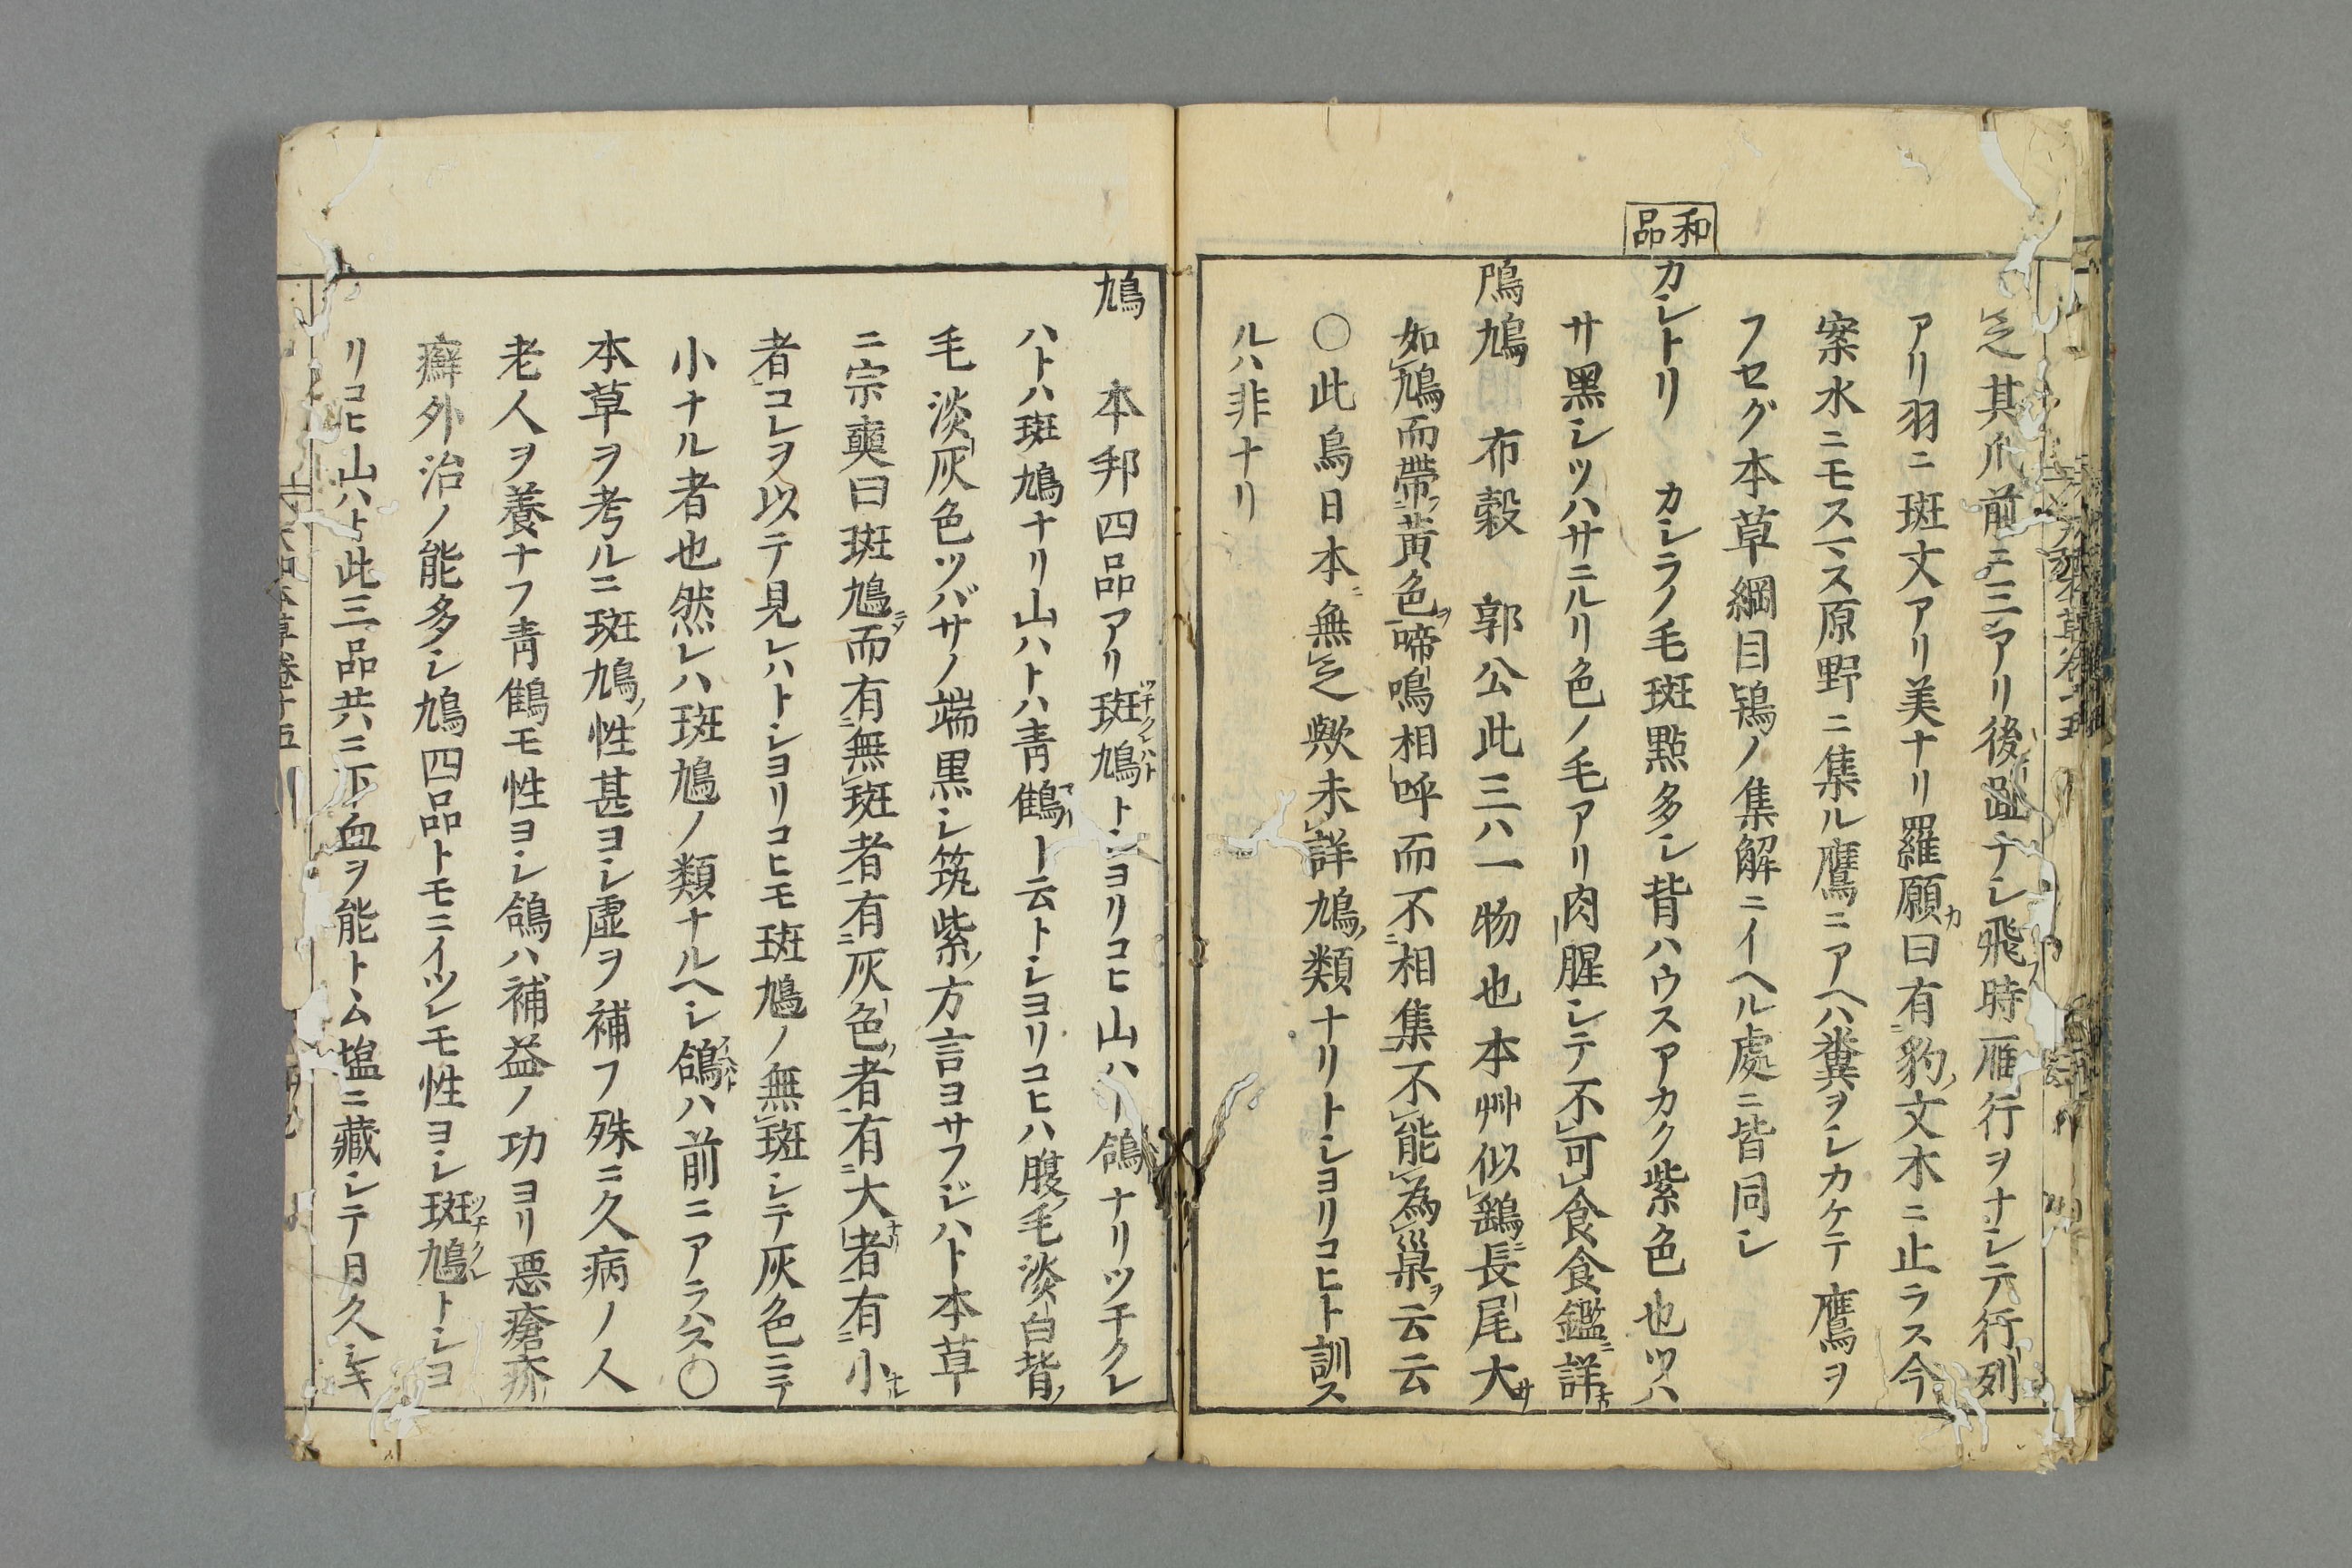 之其爪前ニ三アリ後趾ナシ飛時雁行ヲナシテ行列
アリ羽ニ斑文アリ美ナリ羅願曰有豹文木ニ止ラス今
案水ニモスマス原野ニ集ル鷹ニアヘハ糞ヲシカケテ鷹ヲ
フセグ本草綱目鴇ノ集解ニイヘル處ニ皆同シ
和品
カシトリ カシラノ毛斑點多シ背ハウスアカク紫色也ツハ
サ黑シツハサニルリ色ノ毛アリ肉腥シテ不可食食鑑ニ詳ナリ
鳲鳩 布穀 郭公此三ハ一物也本艸似鷂長尾大サ
如鳩而帶黃色啼鳴相呼而不相集不能為巢云云
○此鳥日本ニ無之歟未詳鳩ノ類ナリトシヨリコヒト訓ス
ルハ非ナリ
鳩 本邦四品アリ斑鳩トシヨリコヒ山ハト鴿ナリツチクレ
ハトハ斑鳩ナリ山ハトハ青䳡ト云トシヨリコヒハ腹ノ毛淡白背ノ
毛淡灰色ツバサノ端黒シ筑紫ノ方言ヨサフジハト本草
ニ宗奭曰斑鳩而有無斑者有灰色者有大者有小
者コレヲ以テ見レハトシヨリコヒモ斑鳩ノ無斑シテ灰色ニテ
小ナル者也然レハ斑鳩ノ類ナルヘシ鴿ハ前ニアラハス○
本草ヲ考ルニ斑鳩ノ性甚ヨシ虛ヲ補フ殊ニ久病ノ人
老人ヲ養ナフ青䳡モ性ヨシ鴿ハ補益ノ功ヨリ惡瘡疥
癬外治ノ能多シ鳩四品トモニイツレモ性ヨシ斑鳩トシヨ
リコヒ山ハト此三品共ニ下血ヲ能ト厶塩ニ藏シテ日久シキ
大和本草卷十五